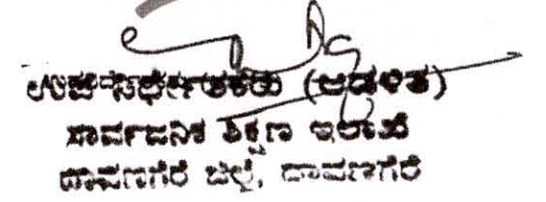 ಉಪ ನಿರ್ದೇಶಕರು (ಆಡಳಿತ)
ಸಾರ್ವಜನಿಕ ಶಿಕ್ಷಣ ಇಲಾಖೆ
ದಾವಣಗೆರೆ ಜಿಲ್ಲೆ, ದಾವಣಗೆರೆ